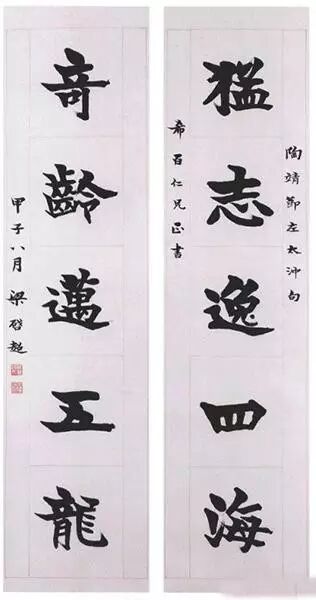 陶靖節左太沖句
猛志逸四海
希百仁兄正書
竒齡邁五龍
甲子八月梁啓超